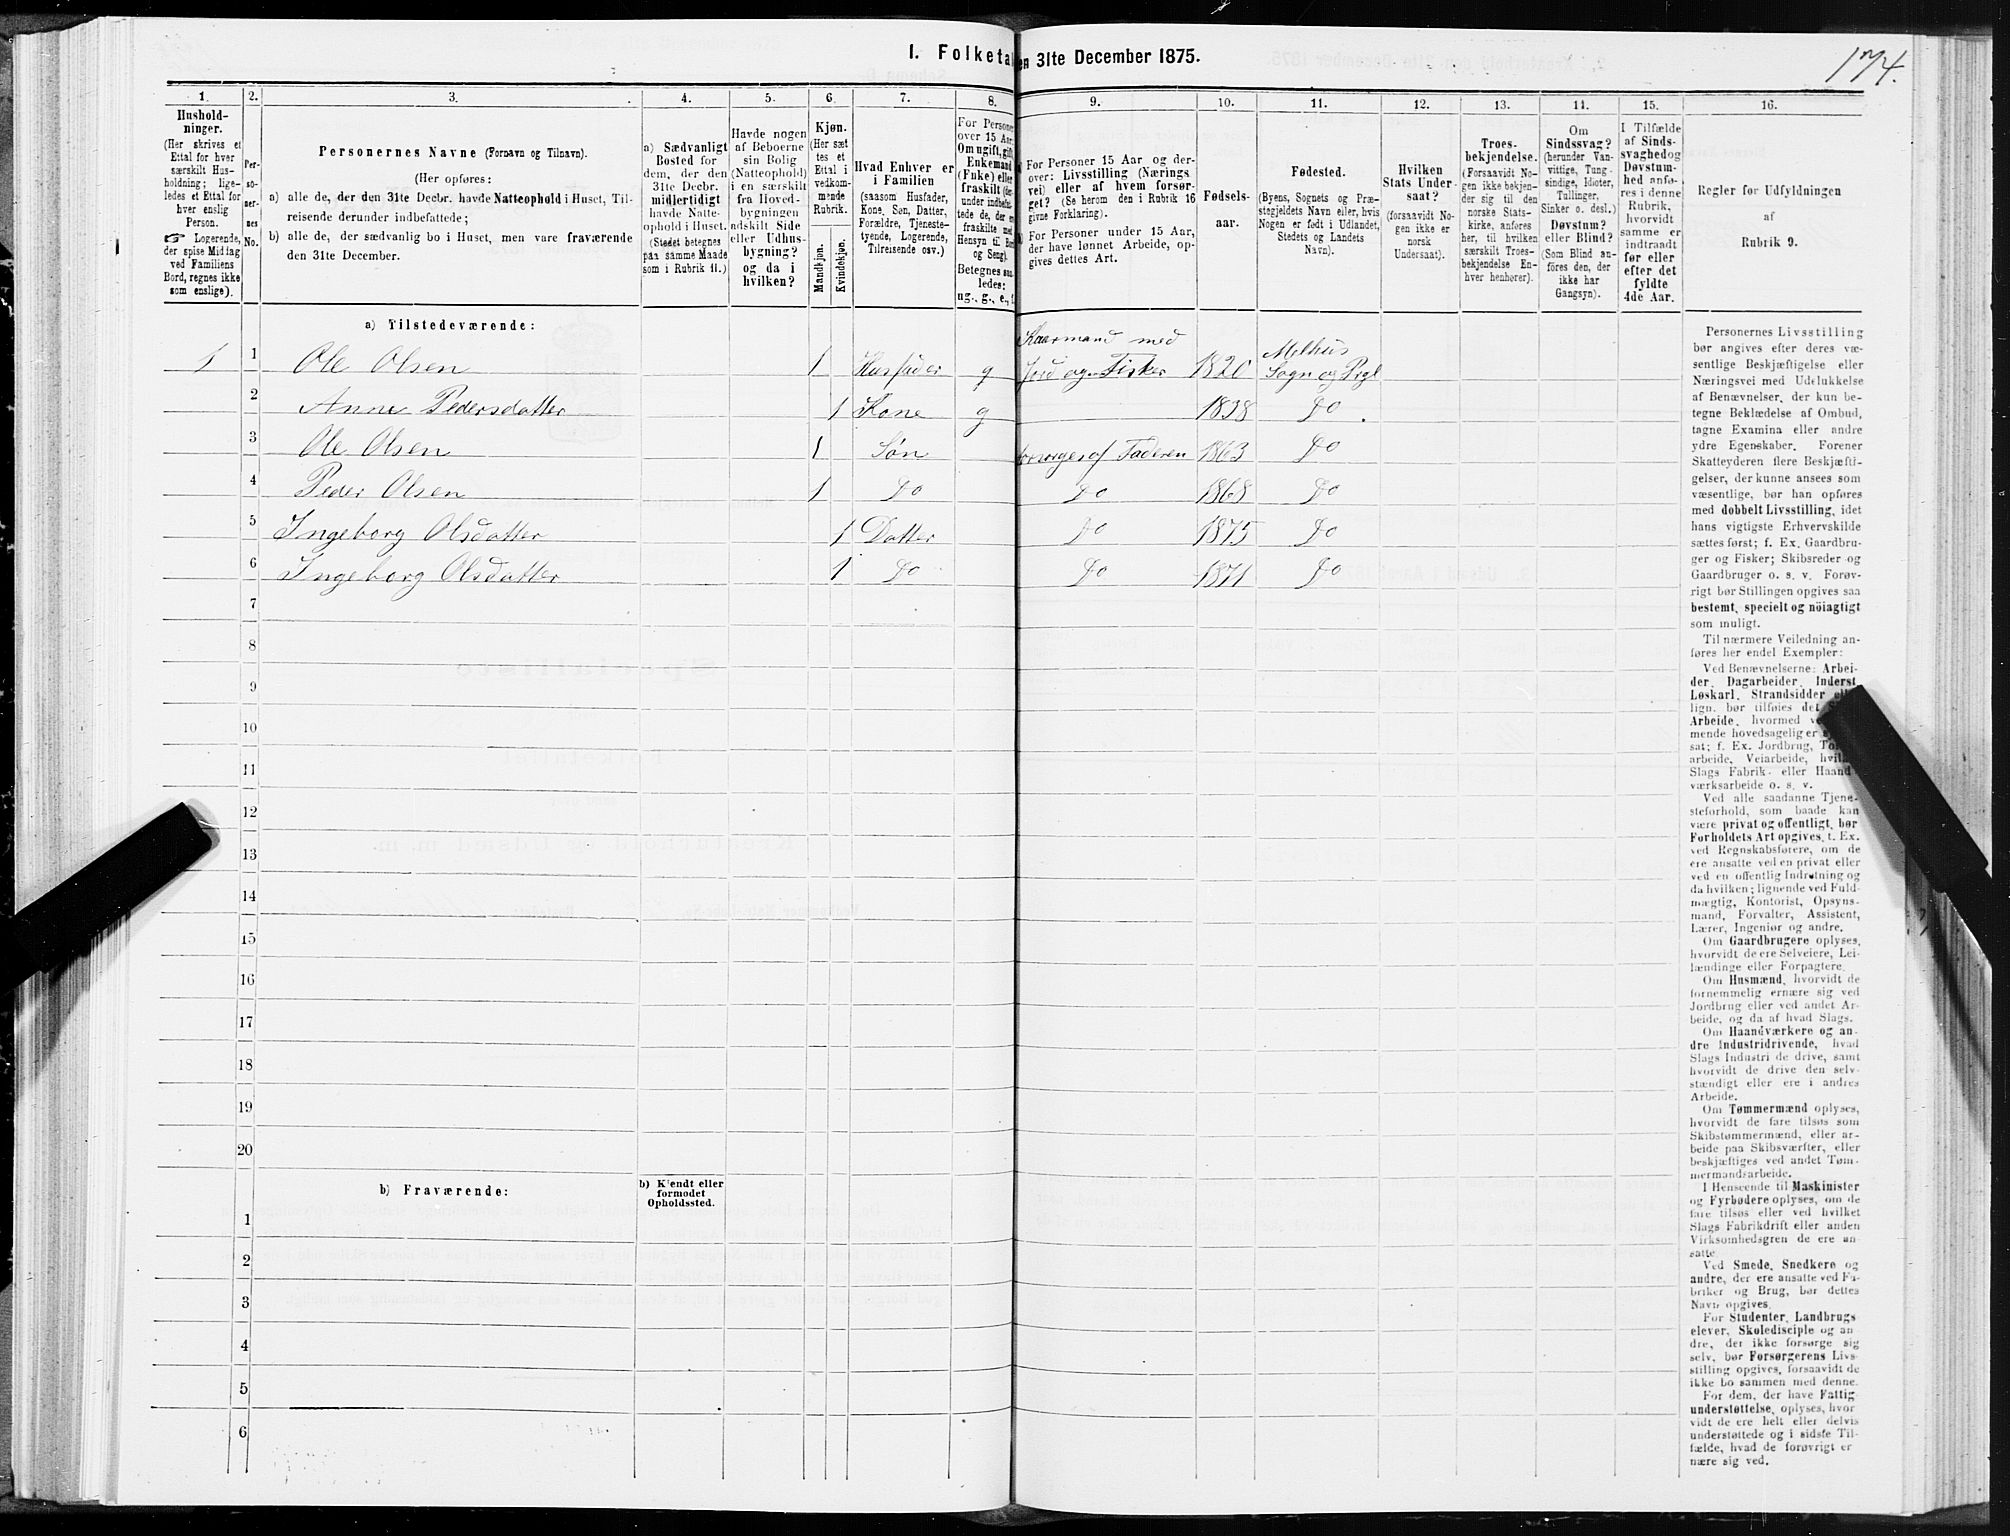 I. Folketal
en 31te December 1875.
174.
1.
2.
3.
4.
5.
6.
7.
8.
9.
10.
11.
12.
13.
14.
15.
16.
Hushold-
ninger.
(Her skrives et
Ettal for hver
særskilt Hus-
holdning; lige-
ledes et Ettal for
hver enslig
Person.
☞ Logerende,
der spise Middag
ved Familiens
Bord, regnes ikke
som enslige).
Per-
so-
ner-
nes
No.
Personernes Navne (Fornavn og Tilnavn).
(Her opføres:
a) alle de, der den 31te Decbr. havde Natteophold i Huset, Til-
reisende derunder indbefattede;
b) alle de, der sædvanlig bo i Huset, men vare fraværende
den 31te December.
a) Sædvanligt
Bosted for
dem, der den
31te Decbr.
midlertidigt
havde Natte-
ophold i Huset.
(Stedet betegnes
paa samme Maade
som i Rubrik 11.)
Havde nogen
af Beboerne
sin Bolig
(Natteophold)
i en særskilt
fra Hoved-
bygningen
adskilt Side
eller Udhus-
bygning?
og da i
hvilken?
Kjøn.
(Her sæt
tes et
Ettal i
vedkom-
mende
Rubrik.
Mandkjøn.
Kvindekjøn.
Hvad Enhver er
i Familien
(saasom Husfader,
Kone, Søn, Datter,
Forældre, Tjeneste-
tyende, Logerende,
Tilreisende osv.)
For Persone
over 15 Aar:
Om ugift, gift
Enkemand
(Enke) eller
fraskilt (der-
under indbefat-
tede de, der er
fraskilte med
Hensyn til Bor
og Seng).
Betegnes saa-
ledes:
ug., g., e.,
For Personer 15 Aar og der-
over: Livsstilling (Nærings
vei) eller af hvem forsør-
get? (Se herom den i Rubrik 16
givne Forklaring).
For Personer under 15 Aar,
der have lønnet Arbeide, op-
gives dettes Art.
Fødsels-
aar.
Fødested.
(Byens, Sognets og Præ-
stegjeldets Navn eller, hvis
Nogen er født i Udlandet,
Stedets og Landets
Navn).
Hvilken
Stats Under-
saat?
(forsaavidt No-
gen ikke er
norsk
Undersaat).
Troes-
bekjendelse.
(Forsaavidt No-
gen ikke bekjen-
der sig til den
norske Stats-
kirke, anføres
her, til hvilken
særskilt Troes-
bekjendelse En-
hver henhører).
Om
Sindssvag?
(herunder Van-
vittige, Tung-
sindige, Idioter,
Tullinger,
Sinker o. desl.)
Døvstum?
eller Blind?
(Som Blind an-
føres den, der
ikke har
Gangsyn).
I Tilfælde
af Sinds-
svaghed og
Døvstum-
hed anfø-
res i denne
Rubrik,
hvorvidt
samme er
indtraadt
før eller
efter det
fyldte
4de Aar.
Regler før Udfyldningen
af
Rubrik 9.
a) Tilstedeværende:
Kaarmand med
Melhus
1 1 Ole Olsen 1 Husfader g Jord og Fisker 1820 Sogn og Prgl
2 Anne Pedersdatter 1 Kone g 1838 Do
3 Ole Olsen 1 Søn forsørges af Faderen 1863 Do
4 Peder Olsen 1 Do Do 1868 Do
5 Ingeborg Olsdatter 1 Datter Do 1875 Do
6 Ingeborg Olsdatter 1 Do Do 1871 Do
7
8
9
10
11
12
13
14
15
16
17
18
19
20
b) Fraværende:
b) Kjendt eller
formodet
Opholdssted.
1
2
3
4
5
6
Personernes Livsstilling
bør angives efter deres væ-
sentlige Beskjæftigelse eller
Næringsvei med Udelukkelse
af Benævnelser, der kun be-
tegne Beklædelse af Ombud,
tagne Examina eller andre
ydre Egenskaber. Forener
Skatteyderen flere Beskjæfti-
gelser, der kunne ansees som
væsentlige, bør han opføres
med dobbelt Livsstilling, idet
hans vigtigste Erhvervskilde
sættes først; f. Ex. Gaardbru-
ger og Fisker; Skibsreder og
Gaardbruger o. s. v. Forøv-
rigt bør Stillingen opgives saa
bestemt, specielt og nöiagtigt
som muligt.
Til nærmere Veiledning an-
føres her endel Exempler:
Ved Benævnelserne: Arbei-
der, Dagarbeider, Inderst,
Løskarl, Strandsidder
lign. bør tilføies det
Arbeide, hvormed
mende hovedsagelig er
sat; f. Ex. Jordbrug,
arbeide, Veiarbeide,
Slags Fabrik- eller Haand-
værksarbeide o. s. v.
Ved alle saadanne Tjene-
steforhold, som baade kan
være privat og offentligt, bør
Forholdets Art opgives, f. Ex.
ved Regnskabsførere, om de
ere ansatte ved en privat eller
ved en offentlig Indretning og
da hvilken; lignende ved Fuld-
mægtig, Kontorist, Opsyns-
mand, Forvalter, Assistent,
Lærer, Ingeniør og andre.
Om Gaardbrugere oplyses,
hvorvidt de ere Selveiere, Lei-
lændinge eller Forpagtere.
Om Husmænd, hvorvidt de
fornemmelig ernære sig ved
Jordbrug eller ved andet Ar-
beide, og da af hvad Slags.
Om Haandværkere og an-
dre Industridrivende, hvad
Slags Industri de drive, samt
hvorvidt de drive den selv-
stændigt eller ere i andres
Arbeide.
Om Tømmermænd oplyses,
hvorvidt de fare tilsøs som
Skibstømmermænd, eller ar-
beide paa Skibsværfter, eller
beskjæftiges ved andet Tøm-
mermandsarbeide.
I Henseende til Maskinister
og Fyrbødere oplyses, om de
fare tilsøs eller ved hvilket
Slags Fabrikdrift eller anden
Virksomhedsgren de ere an-
satte.
Ved Smede, Snedkere og
andre, der ere ansatte ved Fa-
briker og Brug, bør dettes
Navn opgives.
For Studenter, Landbrugs
elever, Skoledisciple og an
dre, der ikke forsørge sig
selv, bør Forsørgerens Livs-
stilling opgives, forsaavidt de
ikke bo sammen med denne.
For dem, der have Fattig-
understøttelse, oplyses, hvor
vidt de ere helt eller delvis
understøttede og i sidste Til-
fælde, hvad de forøvrigt er
nære sig ved.